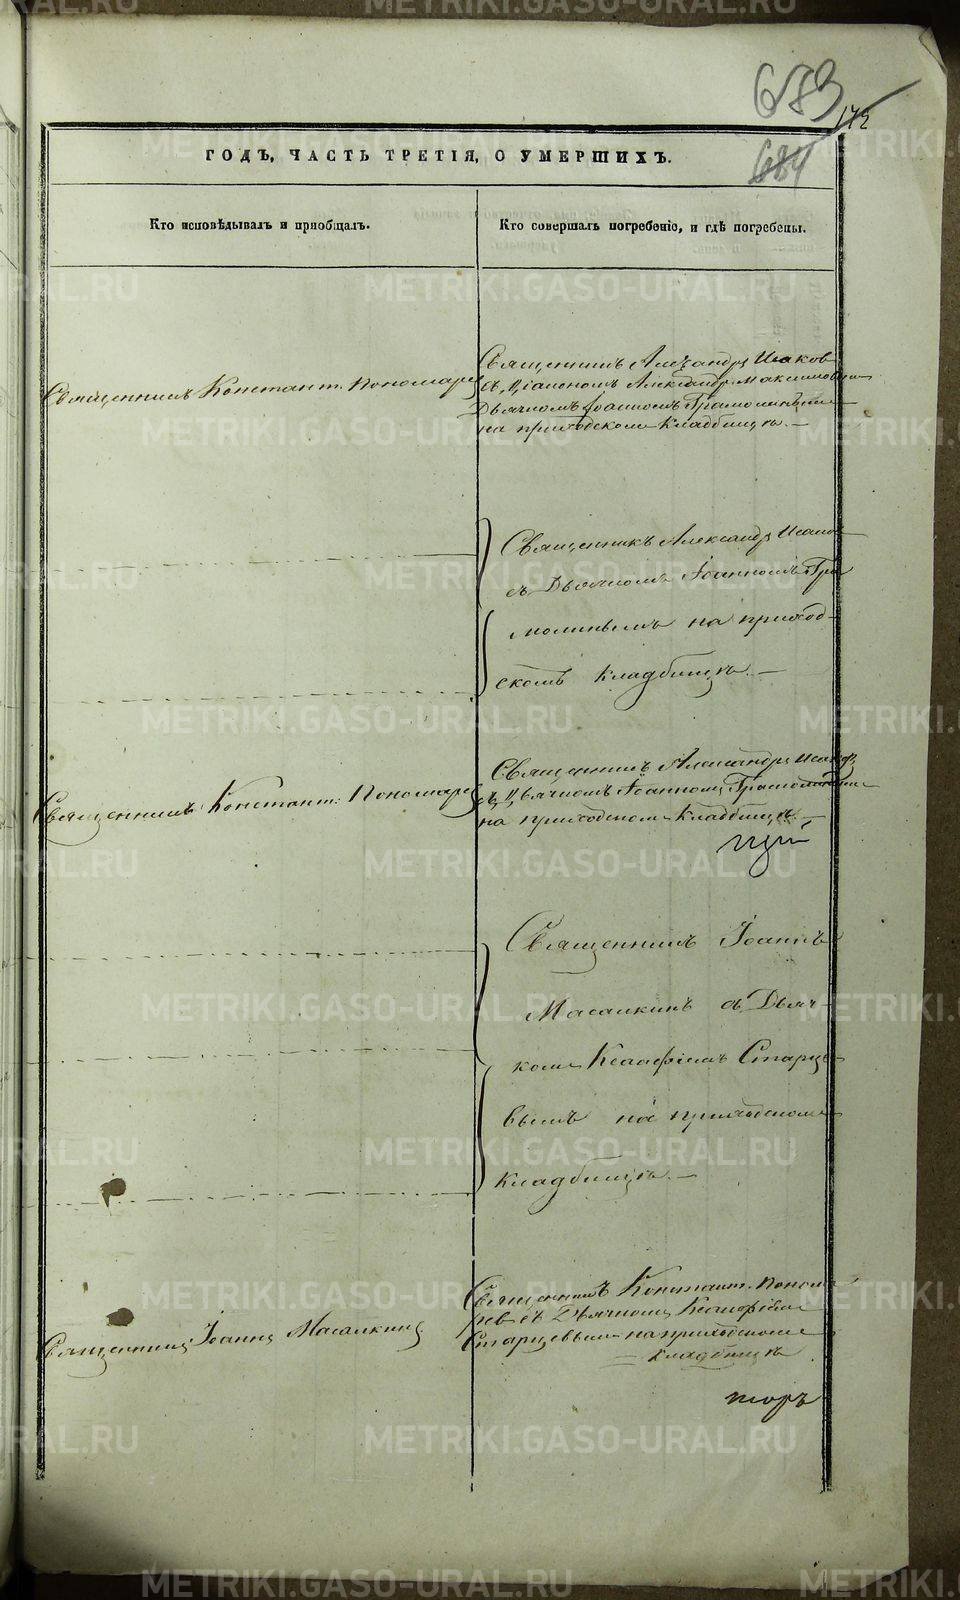 683
172
684
ГОДЪ, ЧАСТЬ ТРЕТІЯ, О УМЕРШИХЪ.
Кто исповѣдывалъ и пріобщалъ.
Кто совершалъ погребеніе, и гдѣ погребены.
Священникъ Константи. Пономарев
Священникъ Александръ Исаков
съ Діакономъ Александр. Максимов
Дьячкомъ Іоанномъ Грамолин
на приходскомъ кладбищѣ.
Священникъ Александръ Исаков
съ Дьячкомъ Іоанномъ Гра
молинымъ на приход-
скомъ кладбищѣ.
Священникъ Констант. Пономарев
Священникъ Александръ Исаков
съ Дьячкомъ Іоанномъ Грамолин
на приходскомъ кладбищѣ
Священникъ Іоаннъ
Масалкинъ съ Дьяч-
комъ Ксенофонтомъ Старце
вымъ на приходскомъ
кладбищѣ.
Священникъ Іоаннъ Масалкинъ
Священникъ Констант. Понома
ревъ съ Дьячкомъ
Старцевымъ на приходскомъ
кладбищѣ
METRIKI.GASO-URAL.RU